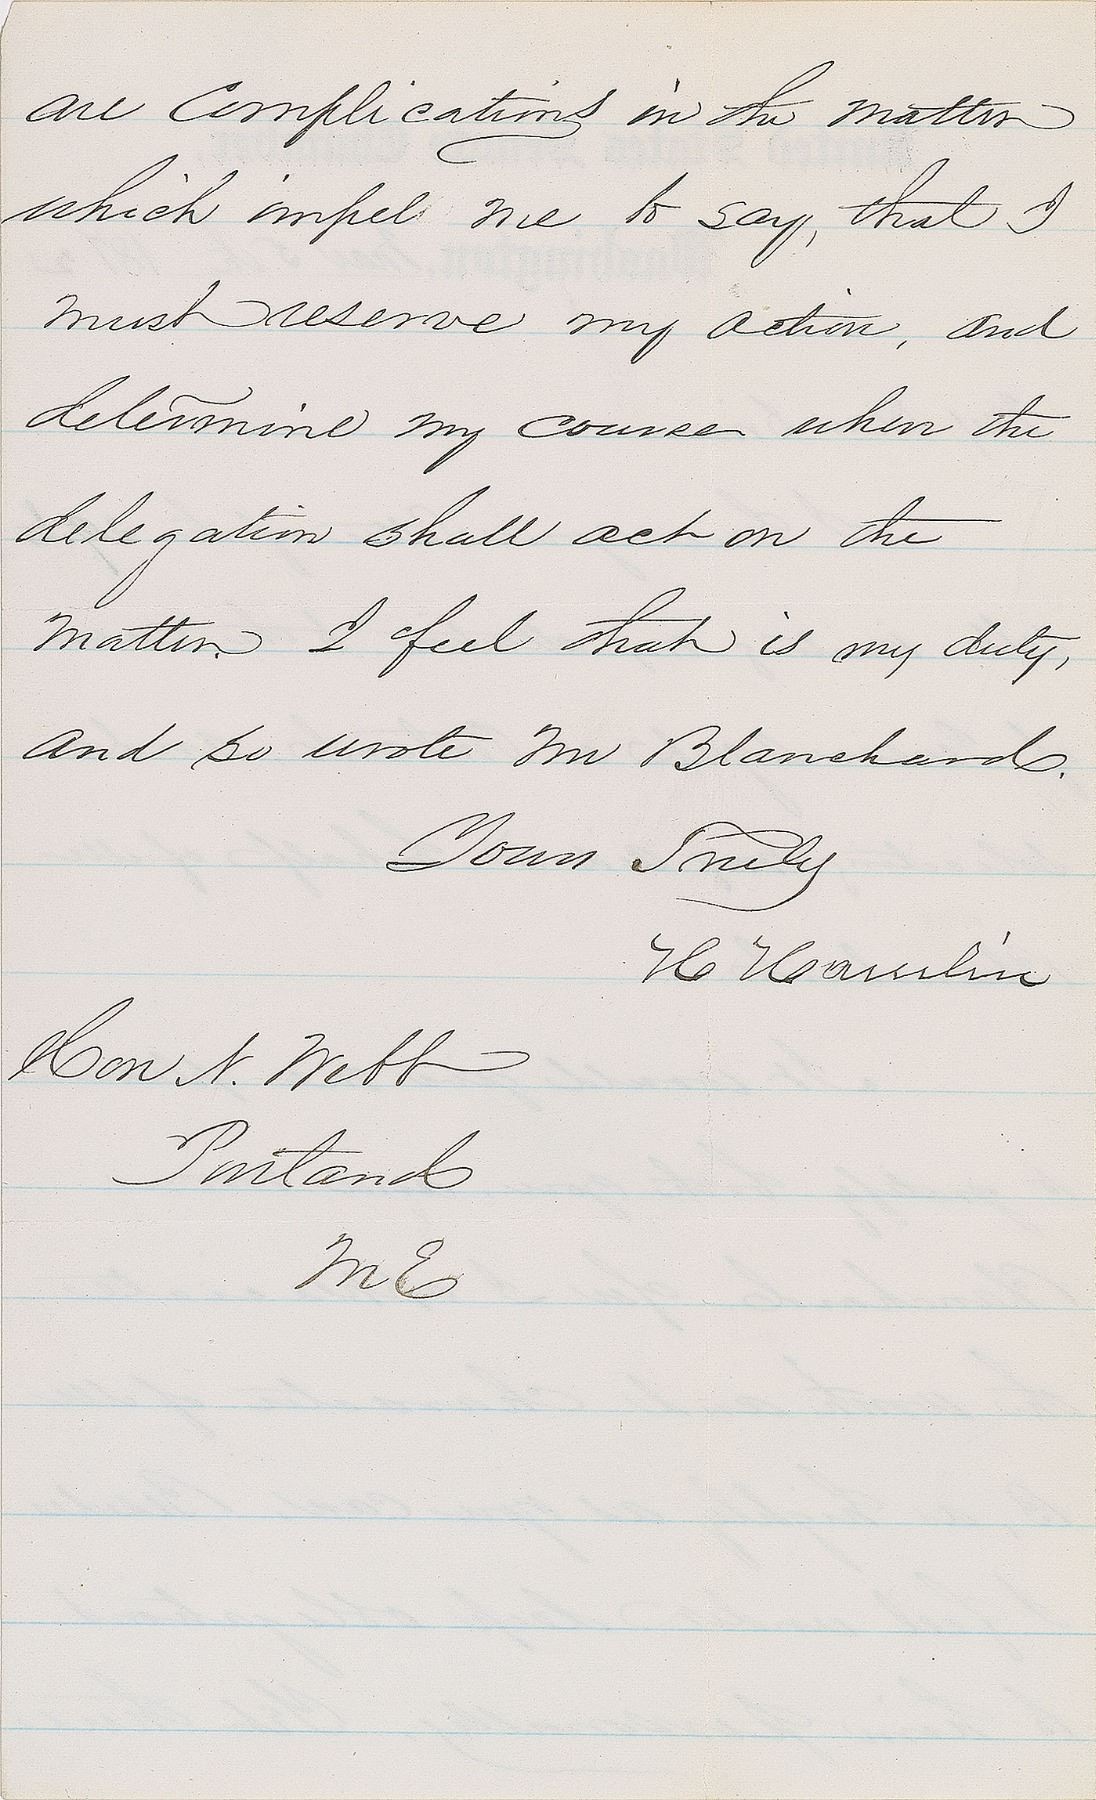 are complications in the matter
which impel me to say, that I
must reserve my action, and
determine my course when the
delegation shall act on the
matter. I feel that is my duty,
and so wrote Mr Blanchard.
Yours Truly
H Hamlin
Hon N. Webb
Portland
ME